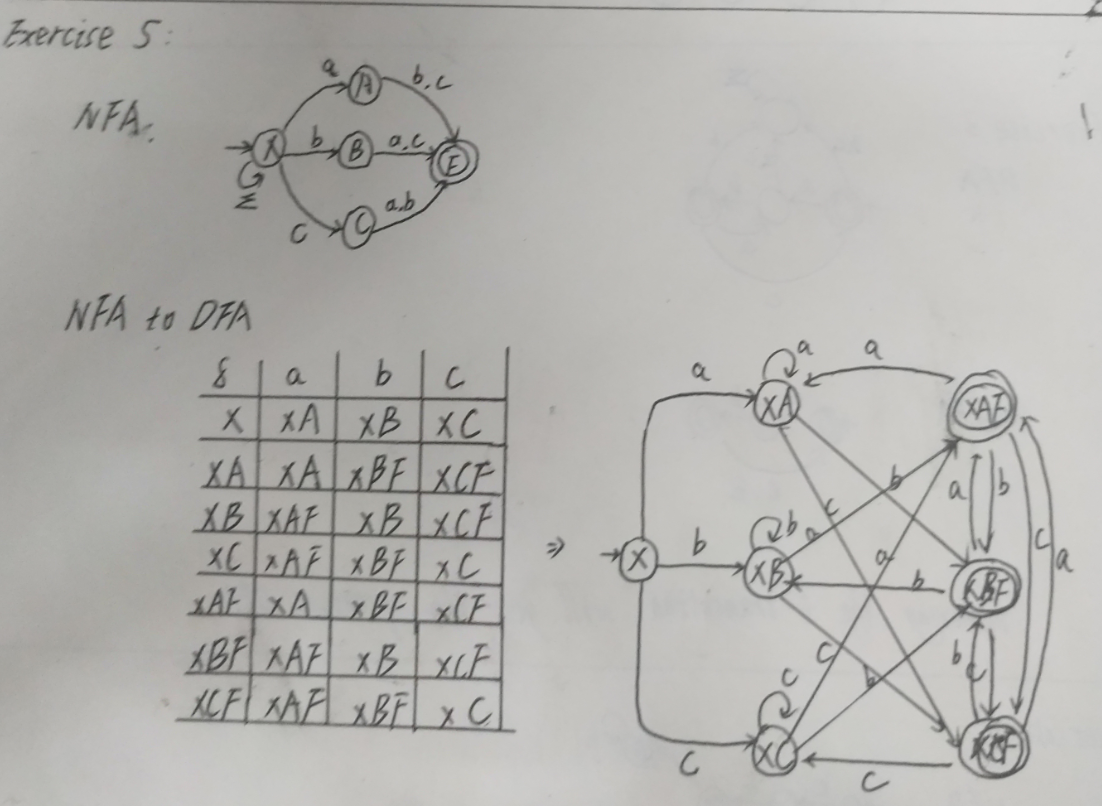 Exercise 5:
NFA:
a A b,c
X b B a,c F
Σ
c C a,b
NFA to DFA
δ a b c
X XA XB XC
XA XA XBF XCF
XB XAF XB XCF
XC XAF XBF XC
XAF XA XBF XCF
XBF XAF XB XCF
XCF XAF XBF XC
⇒
a a a
XA XAF
b c a a b c a
X b XB b b XBF
c c b b c
c XC c XCF